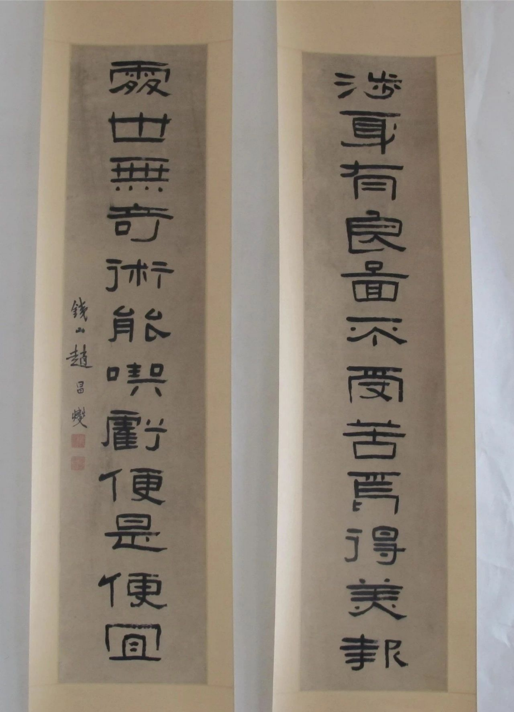 涉身有良啚不受苦焉得美報
處世無奇術能喫虧便是便宜
鐵山趙昌燮